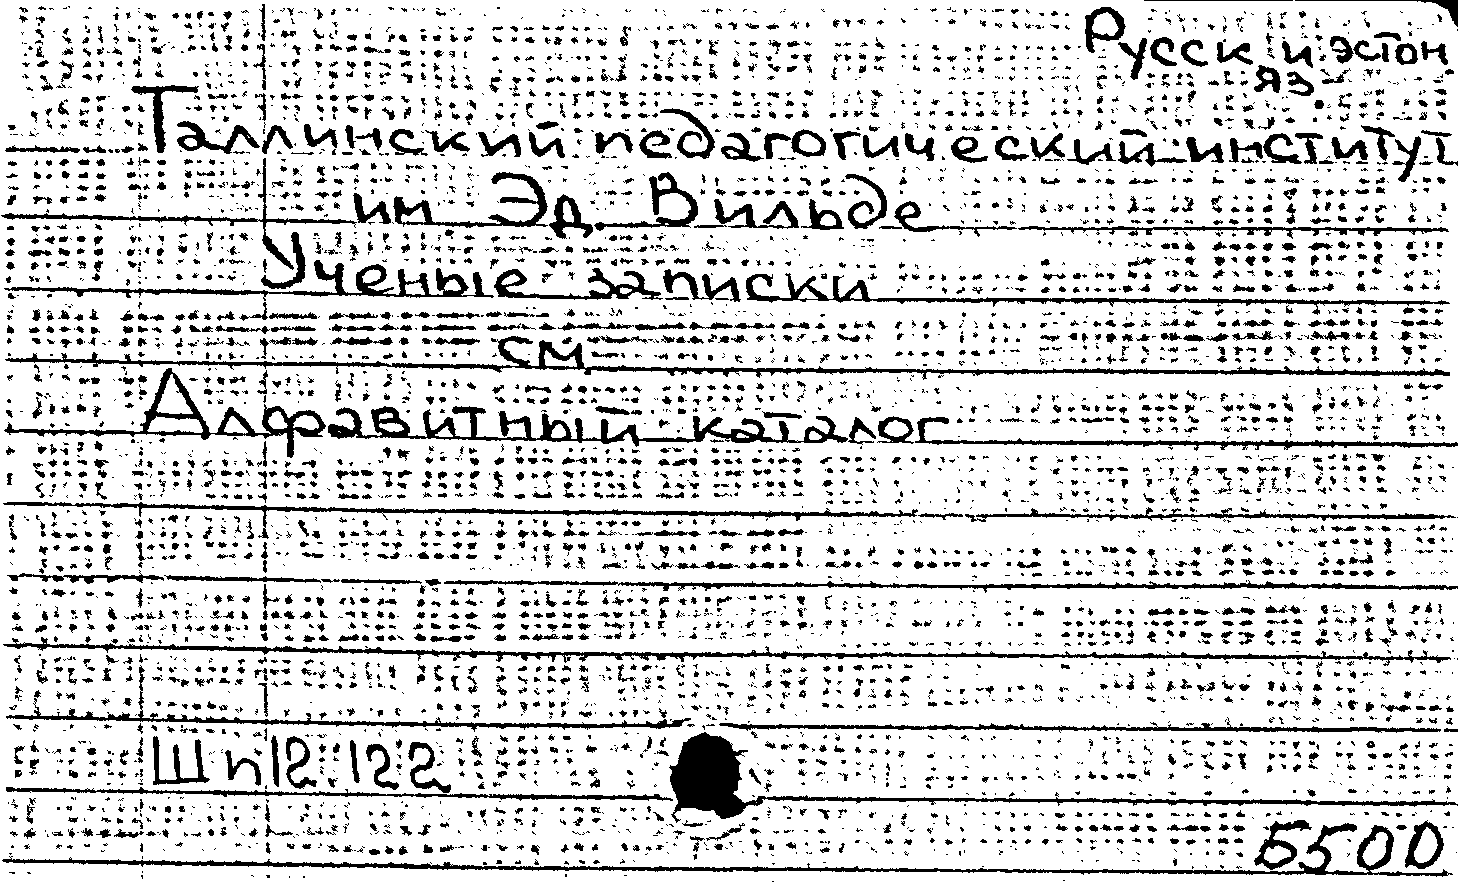 Русск и эстон
яз.
Таллинский педагогический институт
им Эд. Вильде
Ученые записки
см.
Алфавитный каталог
Шп12.122
5500